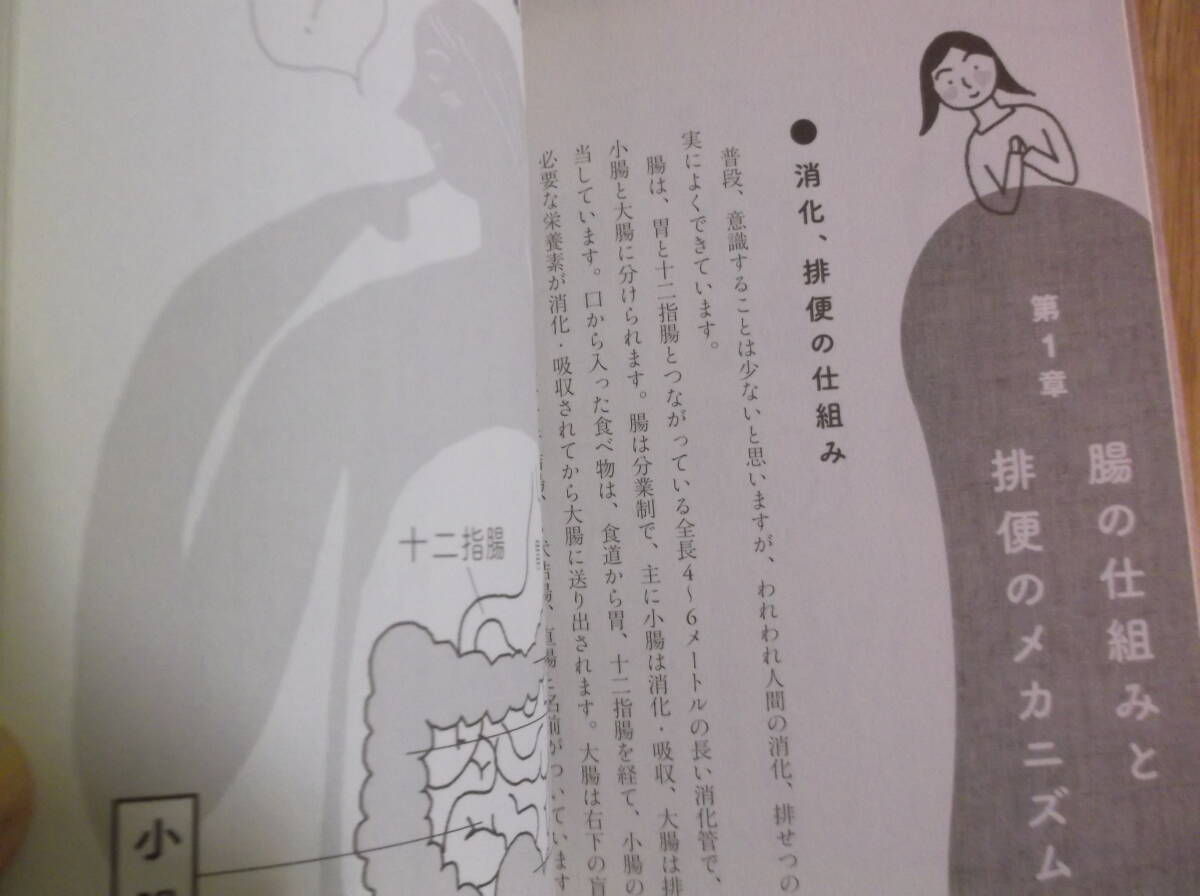 第1章
腸の仕組みと
排便のメカニズム
●消化、排便の仕組み
普段、意識することは少ないと思いますが、われわれ人間の消化、排せつの
実によくできています。
腸は、胃と十二指腸とつながっている全長4～6メートルの長い消化管で、
小腸と大腸に分けられます。腸は分業制で、主に小腸は消化・吸収、大腸は排
当しています。口から入った食べ物は、食道から胃、十二指腸を経て、小腸の
必要な栄養素が消化・吸収されてから大腸に送り出されます。大腸は右下の盲
状結腸、直腸と名前がついています
十二指腸
小腸